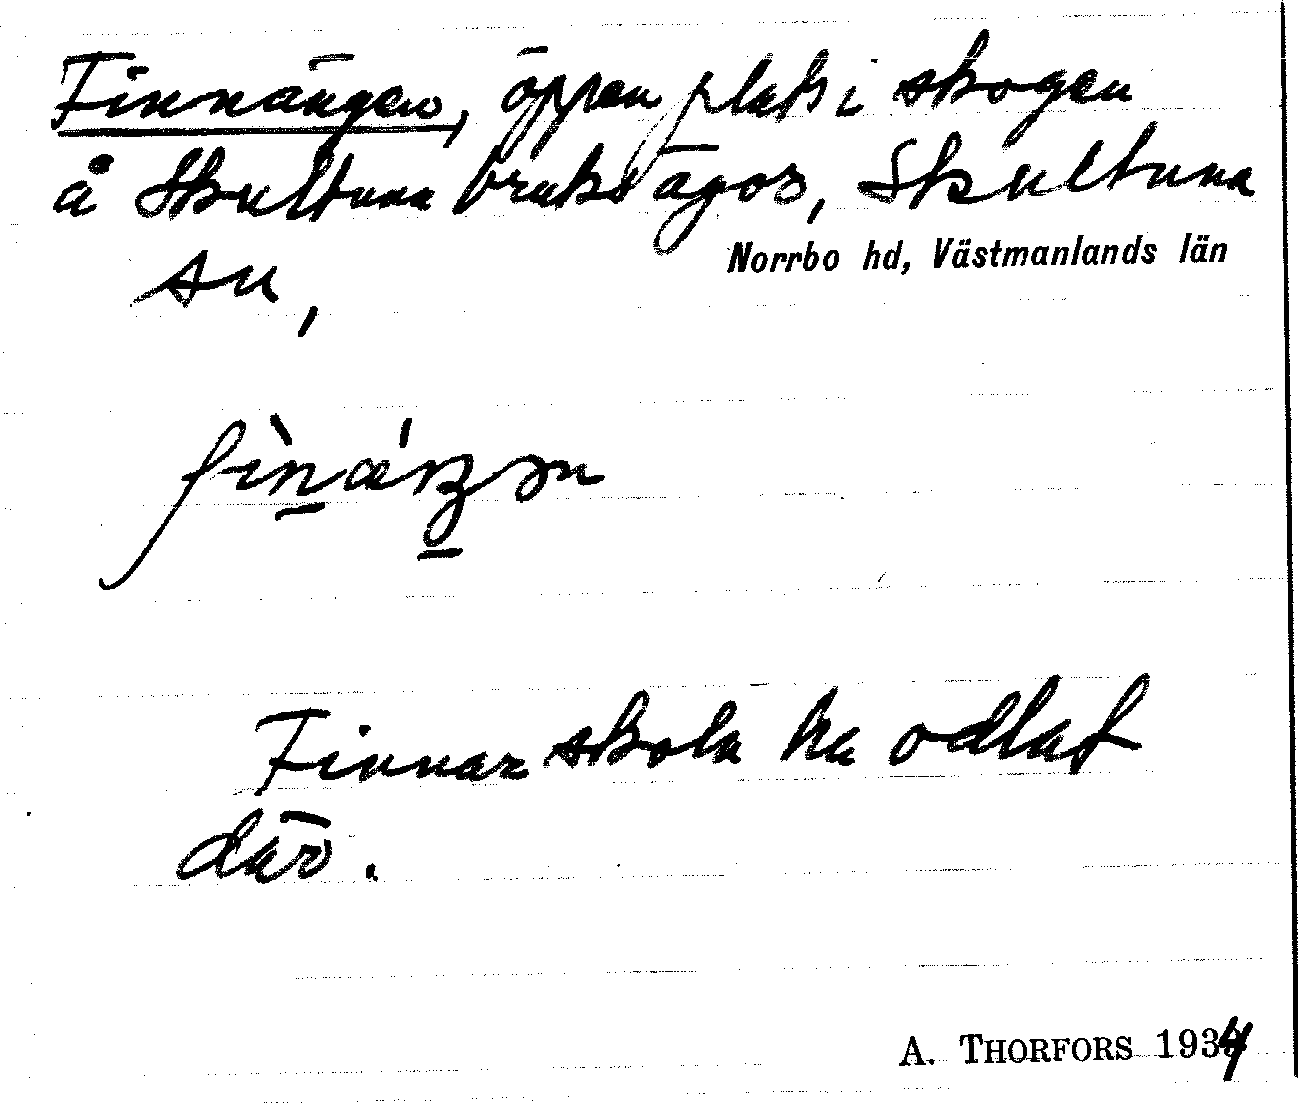 Finnängen, öppen plats i skogen
å Skultuna bruks ägor, Skultuna
sn,
Norrbo hd, Västmanlands län
Finnar skola ha odlat
där.
A. THORFORS 1934